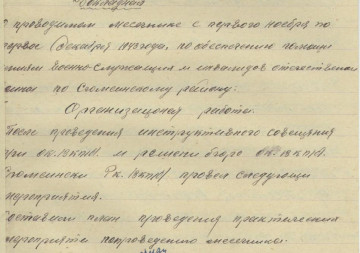 Докладная
О проводимом месячнике с первого ноября по
первое Декабря 1943 года, по обеспечению помощи
семьям Военно-Служащих и инвалидов отечественой
войны по
Организационая работа.
После проведения инструктивного совещания
при ок. ВКП/б/ и решения бюро ОК. ВКП/б.
Рк. ВКП/б/ провел следующи
мероприятия.
Составили план проведения практических
мероприятий по проведению месячника: